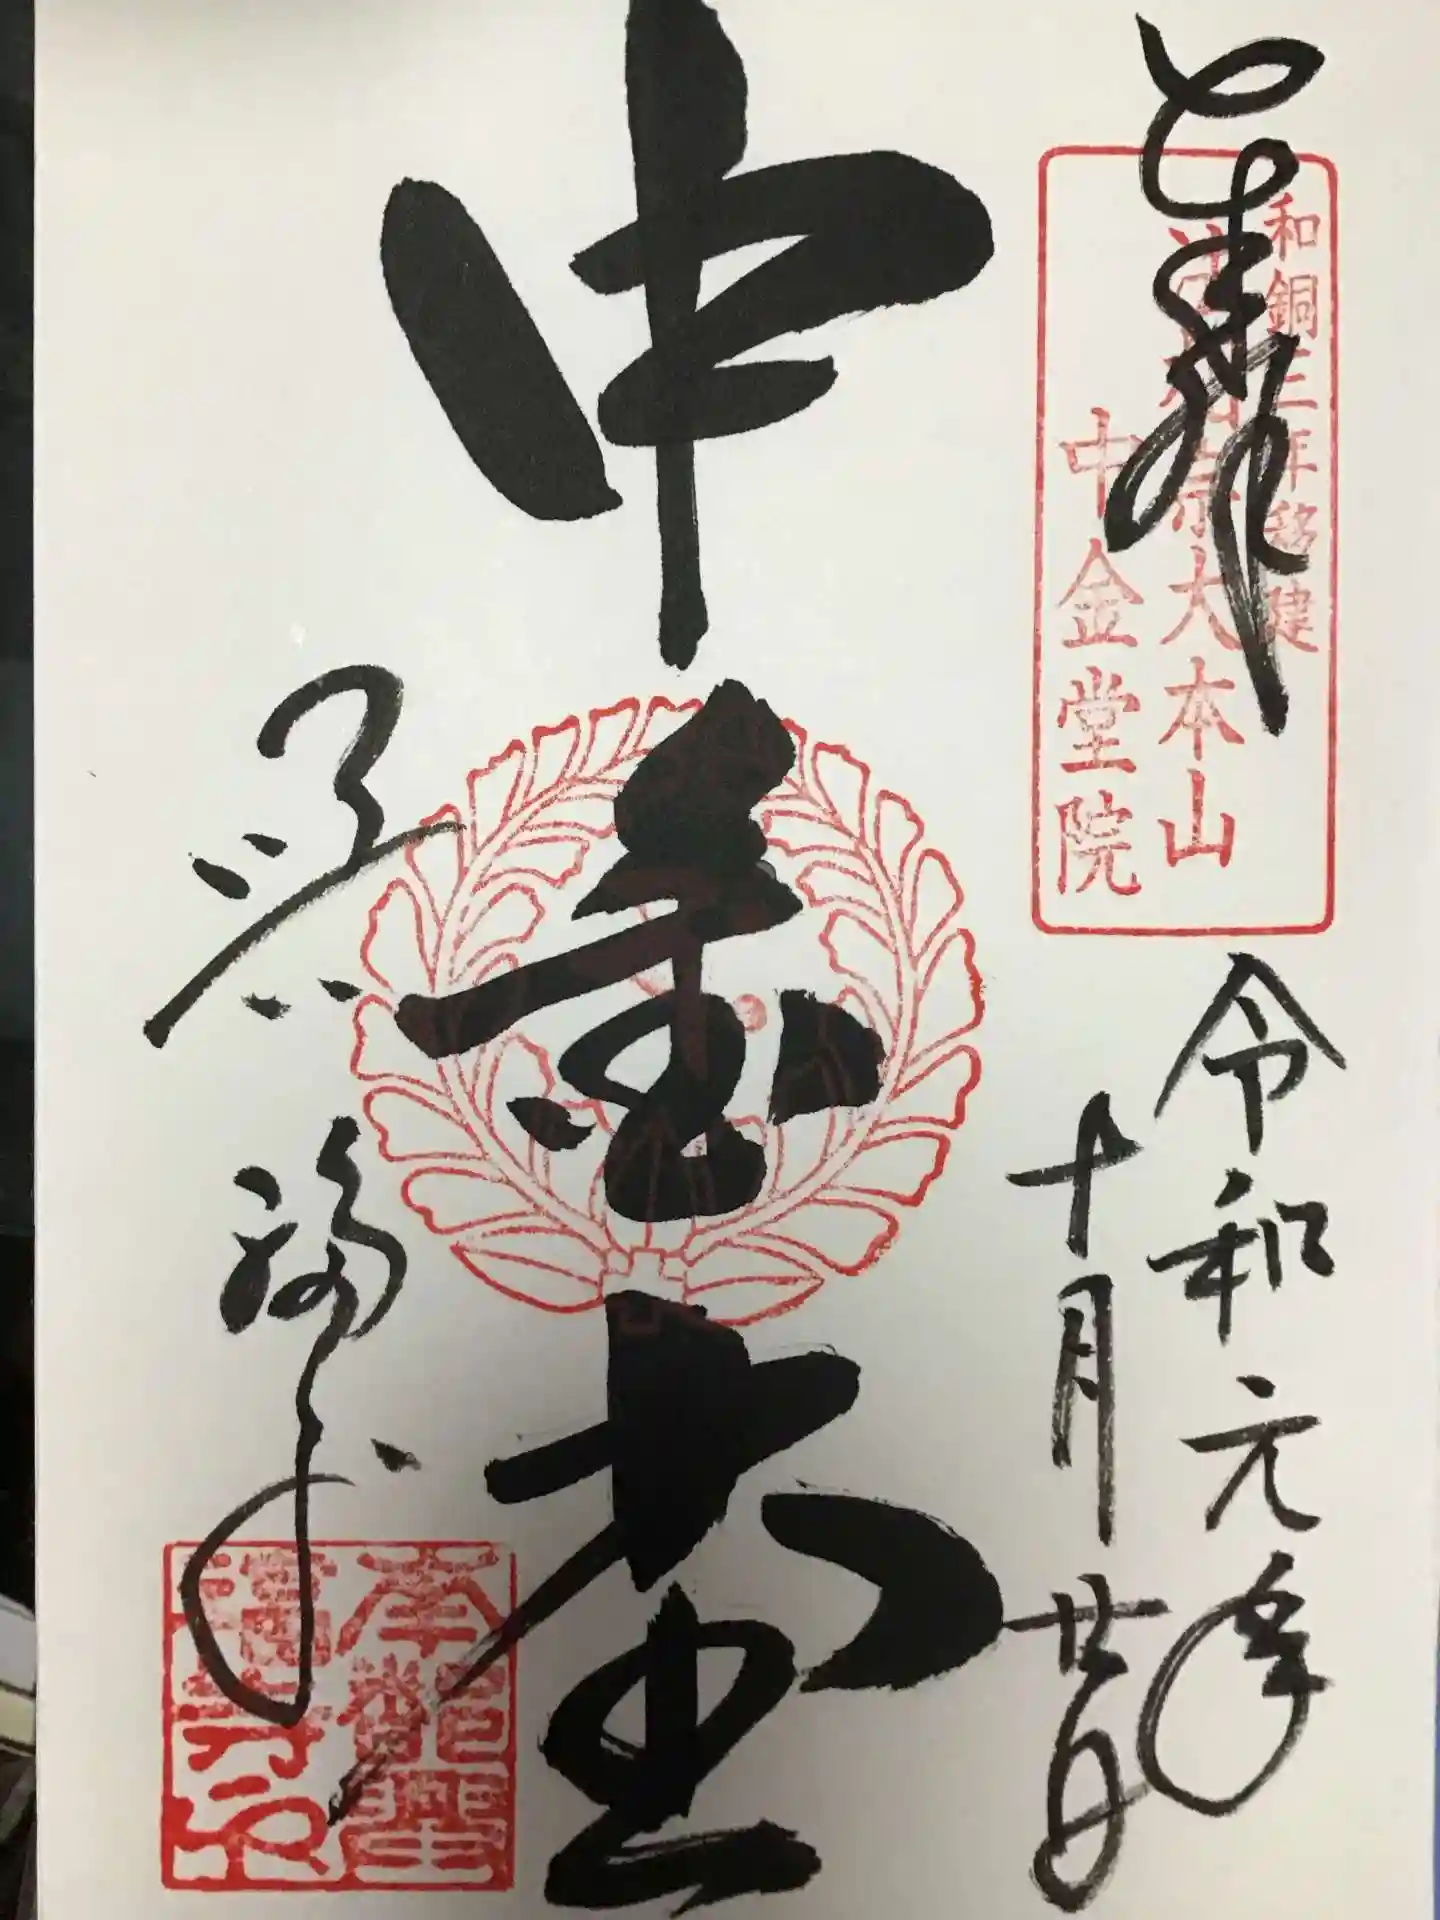 奉拝
和銅三年移建
法相宗大本山
中金堂院
令和元年
十月廿日
中金堂
興福寺